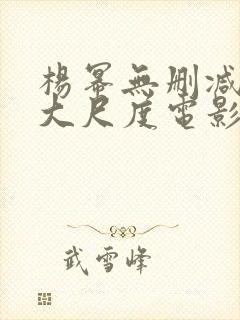 楊冪無刪減
大尺度電影
武雪峰